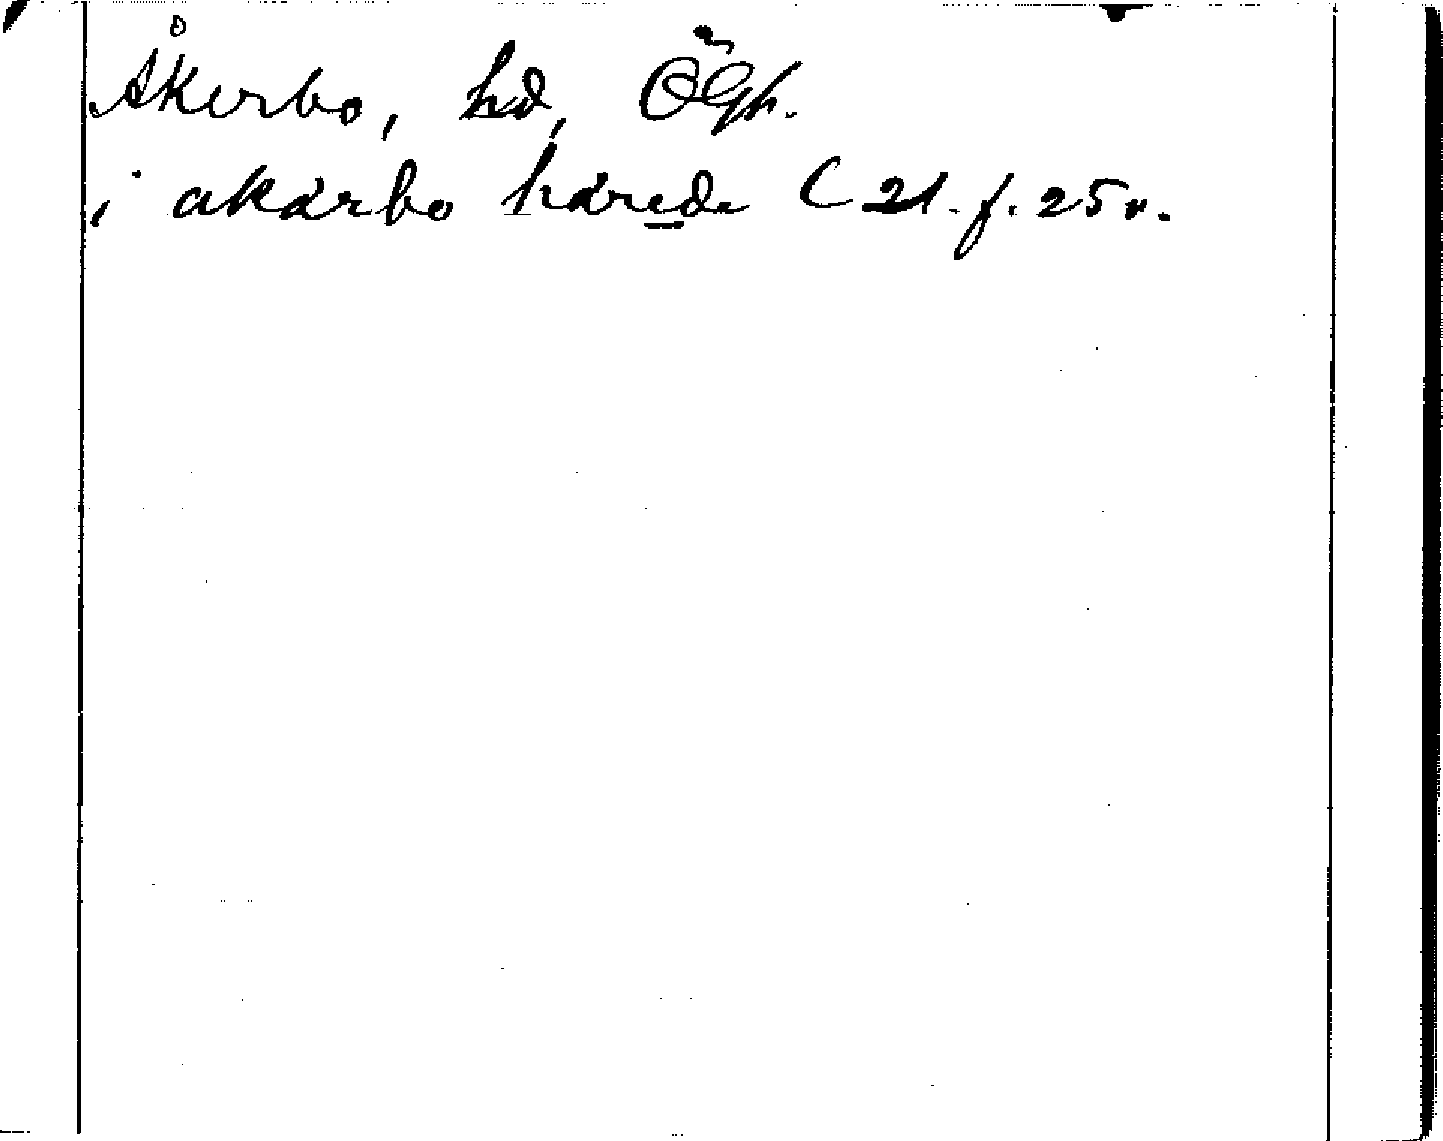 Åkerbo, hd, ÖGh.
i akarbo härede C 21. f. 25 v.